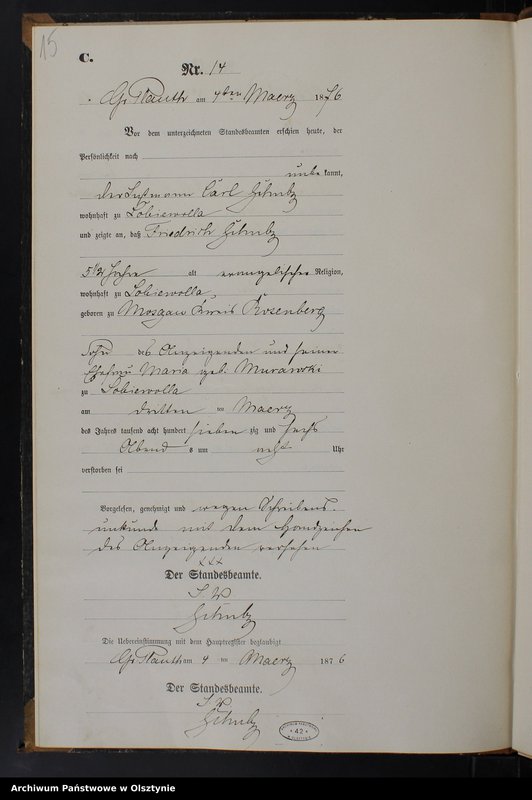 15
C.
Nr. 14
Gr Plauth am 4ten Maerz 1876
Vor dem unterzeichneten Standesbeamten erschien heute, der
Persönlichkeit nach
unbe kannt,
der Instmann Carl
wohnhaft zu Sobiewolla
und zeigte an, daß Friedrich
5 1/2 Jahre alt evangelischer Religion,
wohnhaft zu Sobiewolla,
geboren zu Mosgau Kreis Rosenberg
Sohn des Anzeigenden und seiner
Ehefrau Maria geb. Murawski
zu Sobiewolla
am dritten ten Maerz
des Jahres tausend acht hundert sieben zig und sechs
Abend s um acht Uhr
verstorben sei
Vorgelesen, genehmigt und wegen Schreibens-
unkunde mit dem Handzeichen
des Anzeigenden versehen
XXX
Der Standesbeamte.
Die Uebereinstimmung mit dem Hauptregister beglaubigt
Gr Plauth am 4 ten Maerz 1876
Der Standesbeamte.
42
Archiwum Państwowe w Olsztynie